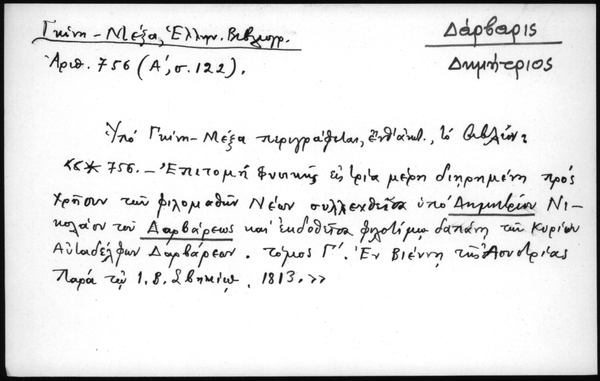 Γκίνη-Μέξα, Ἑλλην. Βιβλιογρ.
Δάρβαρις
Ἀριθ. 756 (Α', σ. 122).
Δημήτριος
Ὑπό Γκίνη-Μέξα περιγράφεται, ἐνθ' ἀνωτ., τό βιβλίον:
«* 756. - Ἐπιτομή φυσικῆς εἰς τρία μέρη διῃρημένη πρός
χρῆσιν τῶν φιλομαθῶν Νέων συλλεχθεῖσα ὑπό Δημητρίου Νι-
κολάου τοῦ Δαρβάρεως καί ἐκδοθεῖσα φιλοτίμῳ δαπάνῃ τῶν Κυρίων
Αὐταδέλφων Δαρβάρεων. τόμος Γ'. Ἐν Βιέννῃ τῆς Ἀουστρίας
Παρά τῷ Ι. Β. Σβηκίῳ. 1813.»